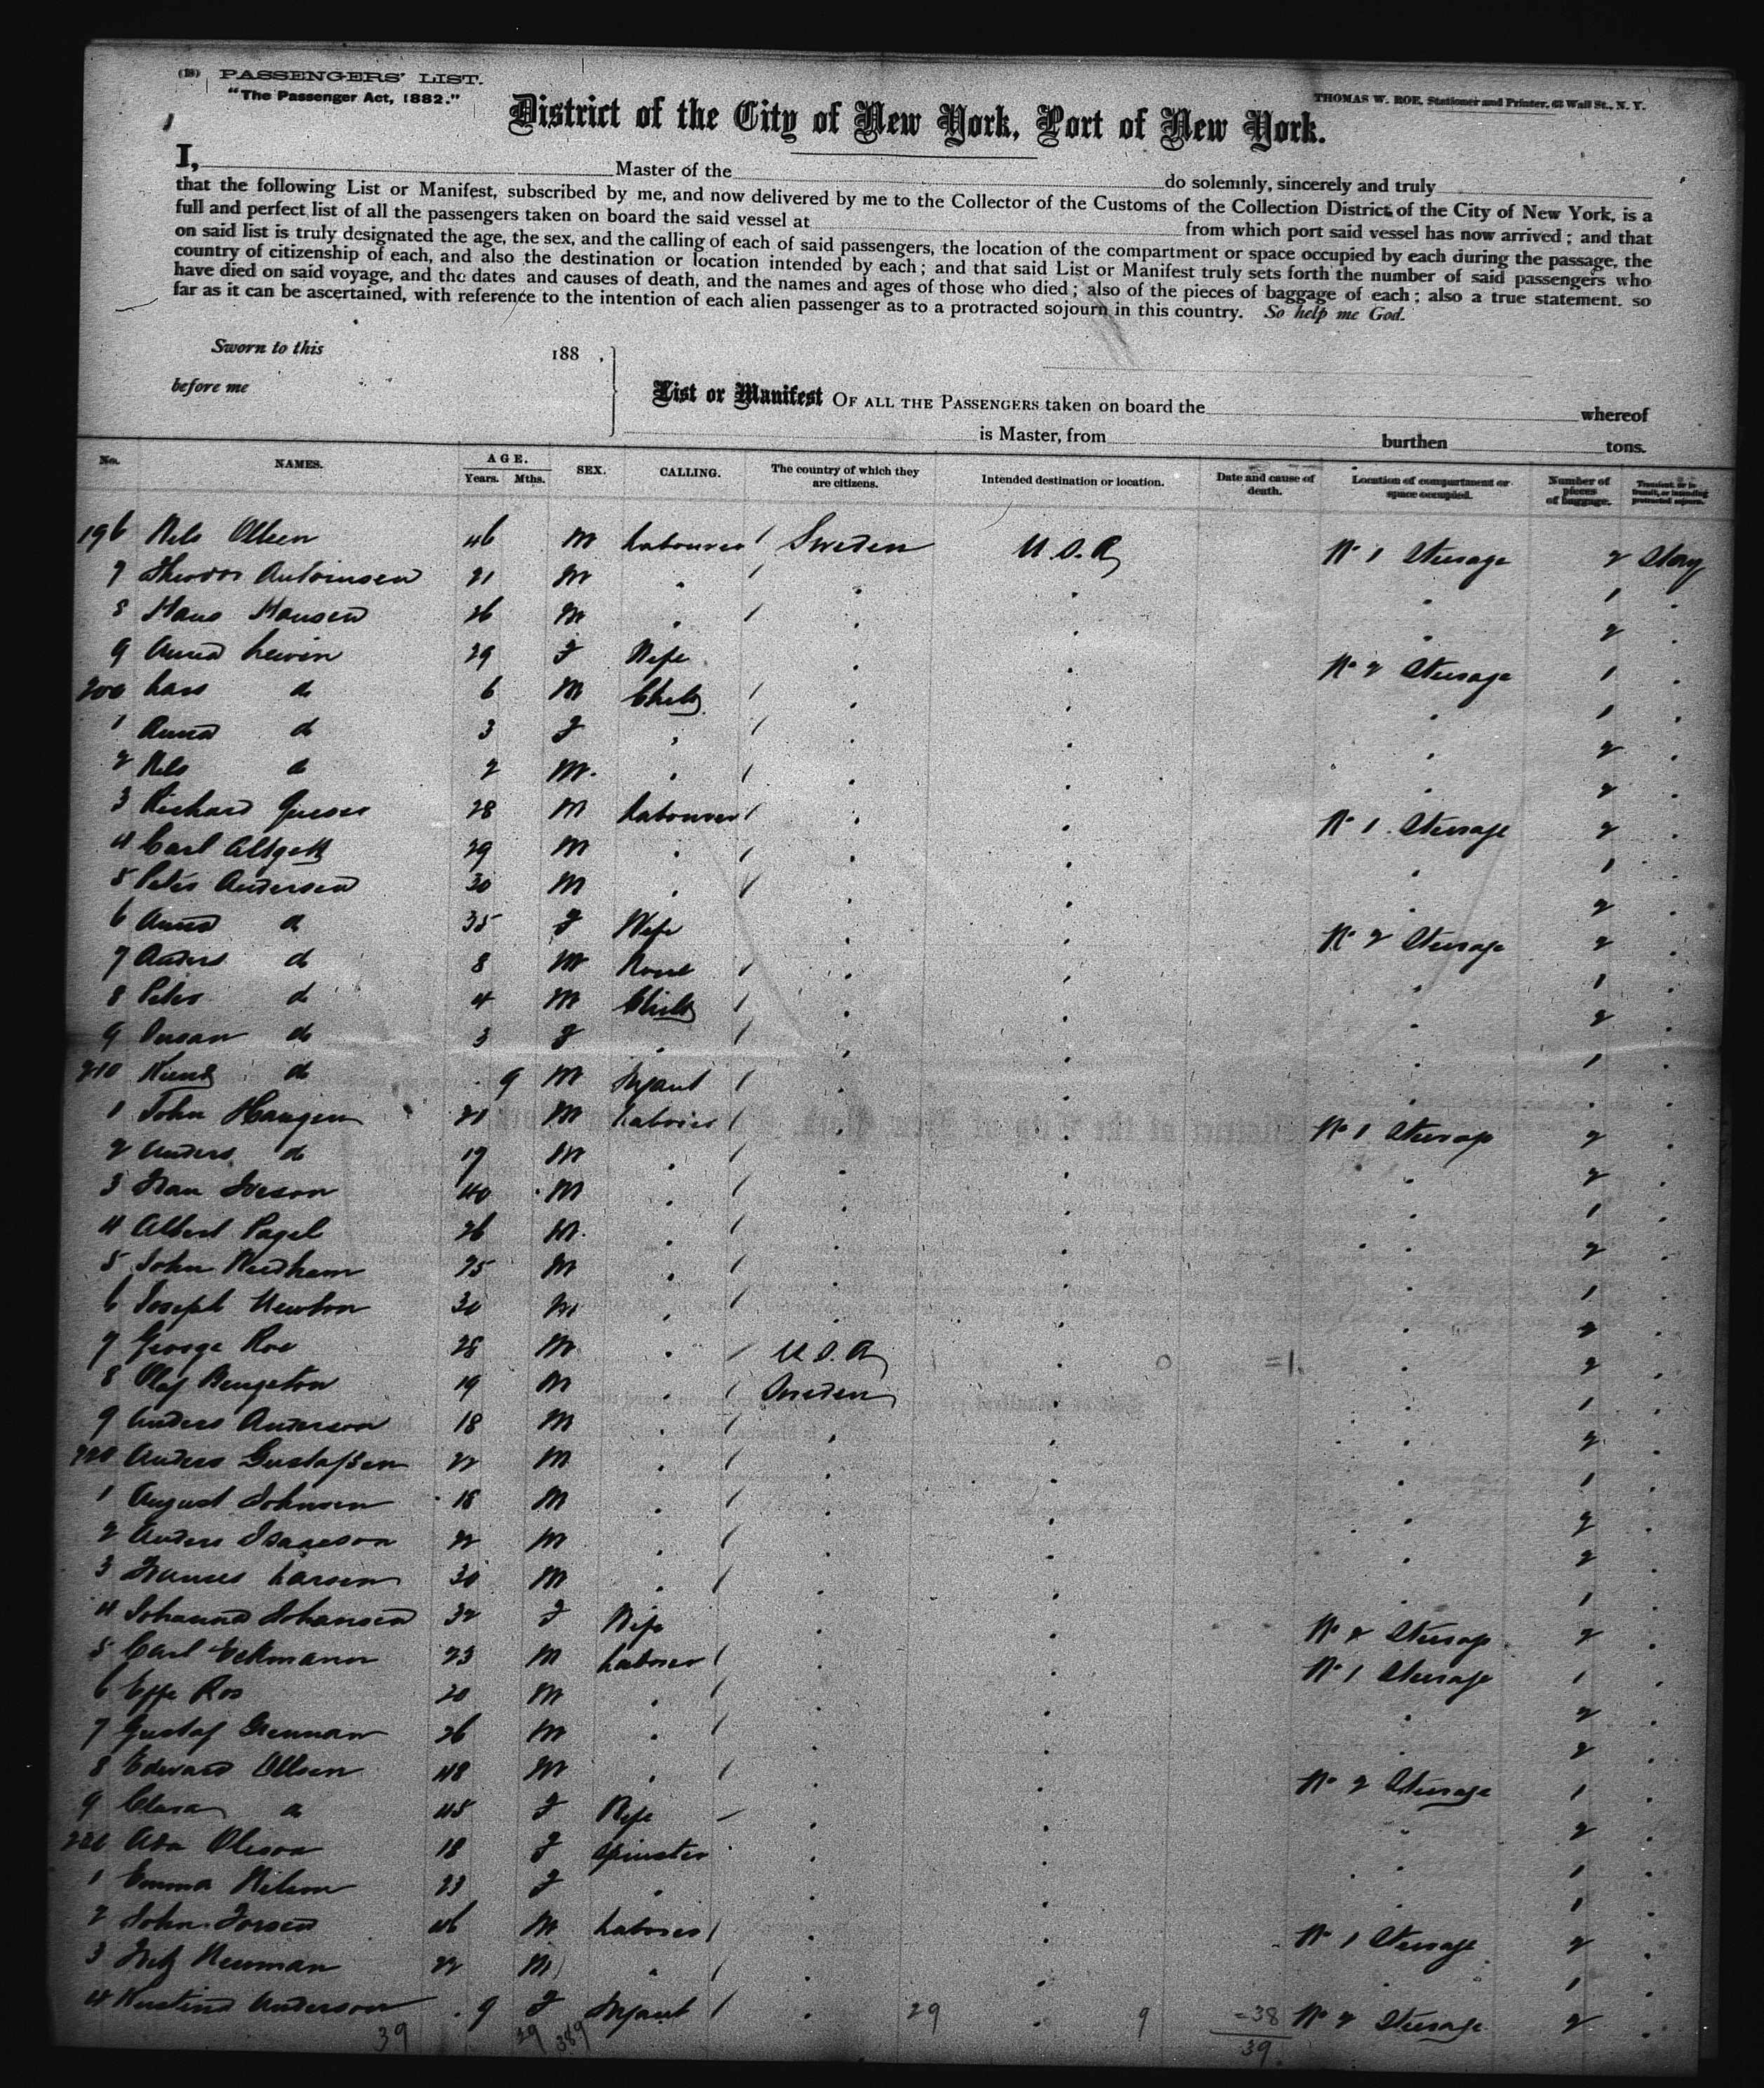 (18) PASSENGERS' LIST.
"The Passenger Act, 1882."
THOMAS W. ROE, Stationer and Printer, 63 Wall St., N. Y.
District of the City of New York, Port of New York.
I, Master of the do solemnly, sincerely and truly
that the following List or Manifest, subscribed by me, and now delivered by me to the Collector of the Customs of the Collection District of the City of New York, is a
full and perfect list of all the passengers taken on board the said vessel at from which port said vessel has now arrived; and that
on said list is truly designated the age, the sex, and the calling of each of said passengers, the location of the compartment or space occupied by each during the passage, the
country of citizenship of each, and also the destination or location intended by each; and that said List or Manifest truly sets forth the number of said passengers who
have died on said voyage, and the dates and causes of death, and the names and ages of those who died; also of the pieces of baggage of each; also a true statement, so
far as it can be ascertained, with reference to the intention of each alien passenger as to a protracted sojourn in this country. So help me God.
Sworn to this 188 .
before me
List or Manifest OF ALL THE PASSENGERS taken on board the whereof
is Master, from burthen tons.
No. NAMES. AGE. Years. Mths. SEX. CALLING. The country of which they are citizens. Intended destination or location. Date and cause of death. Location of compartment or space occupied. Number of pieces of baggage. Transient, or in transit, or intending protracted sojourn.
196 Nels Olsen 46 M Labourer / Sweden U.S.A No 1 Steerage 2 Stay
7 Theodor 21 M " / " " " 1 "
8 Hans Hansen 26 M " / " " " 2 "
9 Anna Lewin 29 F Wife " " No 2 Steerage 1 "
200 Lars do 6 M Child / " " " 1 "
1 Anna do 3 F " / " " " 2 "
2 Nels do 2 M " / " " " 2 "
3 Richard 28 M Labourer / " " No 1 Steerage 2 "
4 Carl 29 M " / " " " 1 "
5 Peter Andersen 30 M " / " " " 2 "
6 Anna do 35 F Wife " " No 2 Steerage 2 "
7 Anders do 8 M None / " " " 1 "
8 Peter do 4 M Child / " " " 2 "
9 Susan do 3 F " / " " " 1 "
210 Knud do 9 M Infant / " " " "
1 John Haugen 21 M Laborer / " " No 1 Steerage 2 "
2 Anders do 19 M " / " " " 2 "
3 Iveson 40 M " / " " " 1 "
4 Albert Pagel 26 M " / " " " 2 "
5 John Needham 25 M " / " " " 1 "
6 Joseph Newton 30 M " / " " " 2 "
7 George Roe 28 M " / U.S.A " 0 =1 " 2 "
8 Olaf Bengston 19 M " / Sweden " " 1 "
9 Anders Anderson 18 M " / " " " 2 "
220 Anders Gustafsen 22 M " / " " " 1 "
1 August Johnsen 18 M " / " " " 2 "
2 Anders Isaacson 22 M " / " " " 2 "
3 Larsen 30 M " / " " " 1 "
4 Johanna Johansen 32 F Wife " " No 2 Steerage 2 "
5 Carl Eckmann 23 M Laborer / " " No 1 Steerage 1 "
6 Ros 20 M " / " " " 2 "
7 Gustaf 26 M " / " " " 2 "
8 Edward Olsen 48 M " / " " No 2 Steerage 1 "
9 Clara do 45 F Wife " " " 2 "
230 Ada Oleson 18 F Spinster " " " 1 "
1 Emma Nilson 23 F " " " " 1 "
2 John 46 M Laborer / " " No 1 Steerage 2 "
3 Newman 22 M " / " " " 1 "
4 Anderson 9 F Infant / " 29 " 9 =38 No 2 Steerage 2 "
39 29 389 39